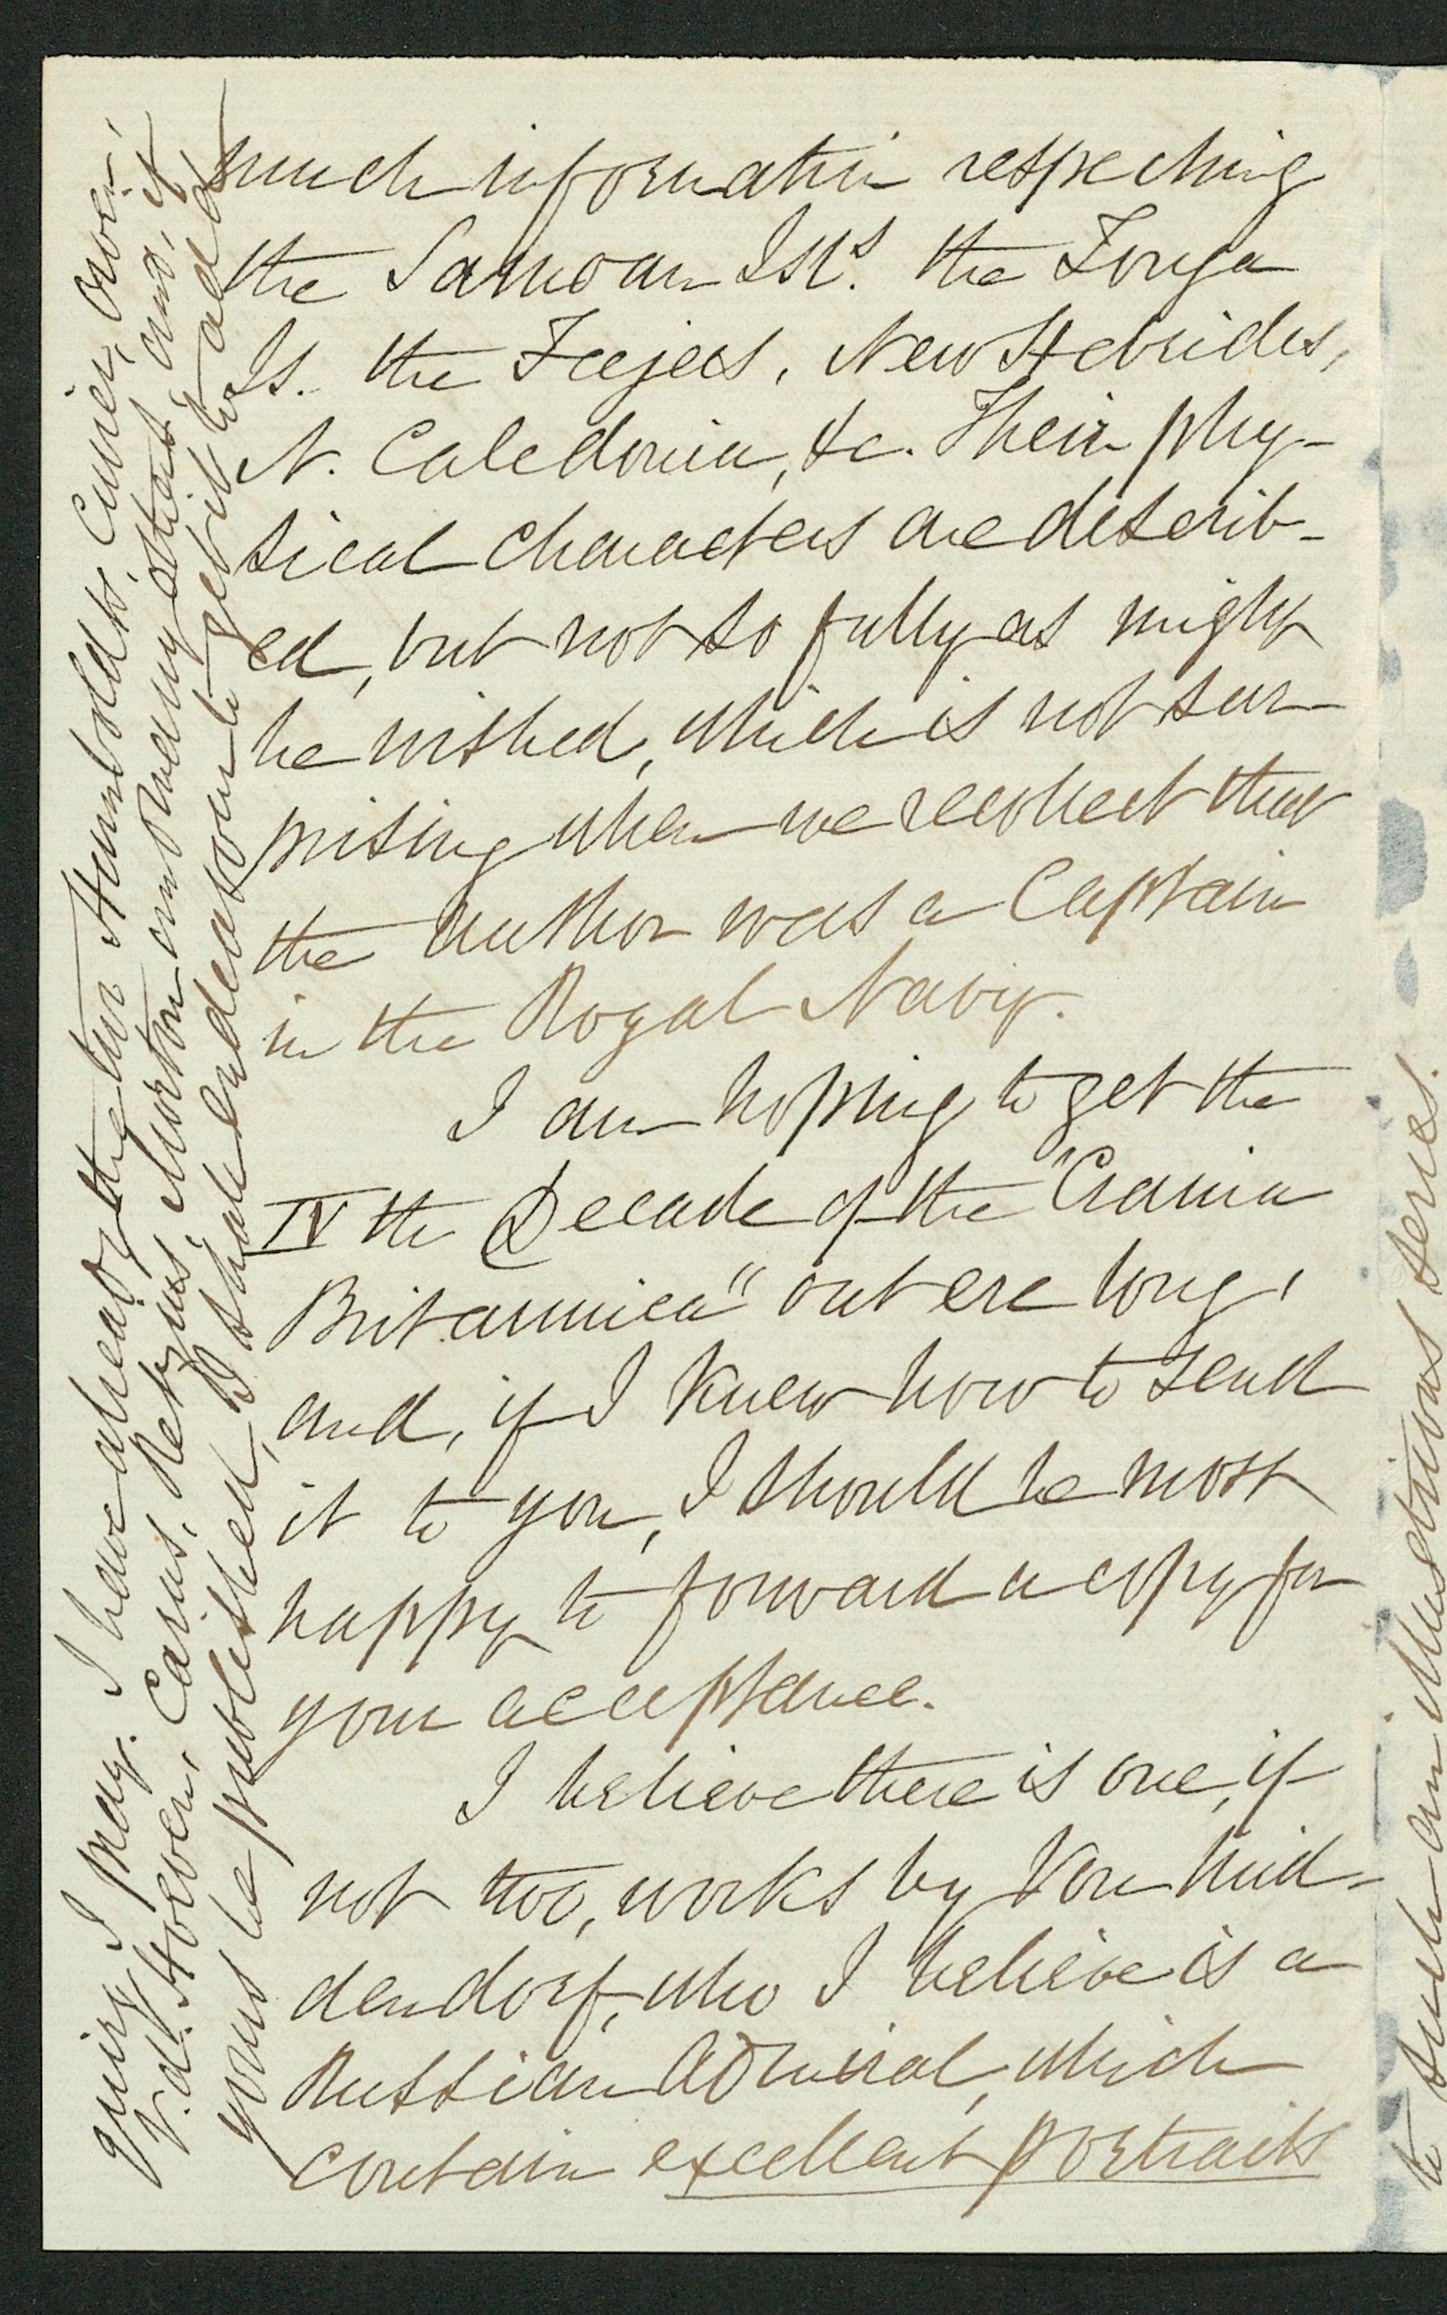 much information respecting
the Samoan Isls. the Tonga
Is. the Feejees, New Hebrides,
N. Caledonia, &c. Their phy-
sical characters are describ-
ed, but not so fully as might
be wished, which is not sur-
prising when we recollect that
the Author was a Captain
in the Royal Navy.
I am hoping to get the
IVth Decade of the "Crania
Britannica" out ere long,
and, if I knew how to send
it to you, I should be most
happy to forward a copy for
your acceptance.
I believe there is one, if
not two, works by Von Mid-
dendorf, who I believe is a
Russian Admiral, which
contain excellent portraits
quiry I may. I have already the two Humboldts, Cuvier, Owen,
V. d. Hoeven, Carus, Retzius, Morton and many others and, if
yours be published, I shall endeavour to get it to add
to such an illustrious series.